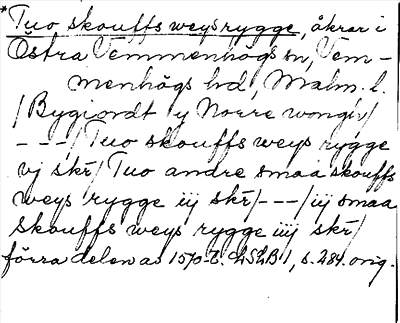 *Tuo skouffs weys rygge, åkrar i
Östra Vemmenhögs sn, Vem-
menhögs hd, Malm. l.
/Bygiordt y Norre wong/
---/Tuo skouffs weys rygge
vj skr/Tuo andre smaa skouffs
weys rygge iij skr/---/iij smaa
skouffs weys rygge iiij skr/
förra delen av 1570 LSLB 1, s. 284 orig.